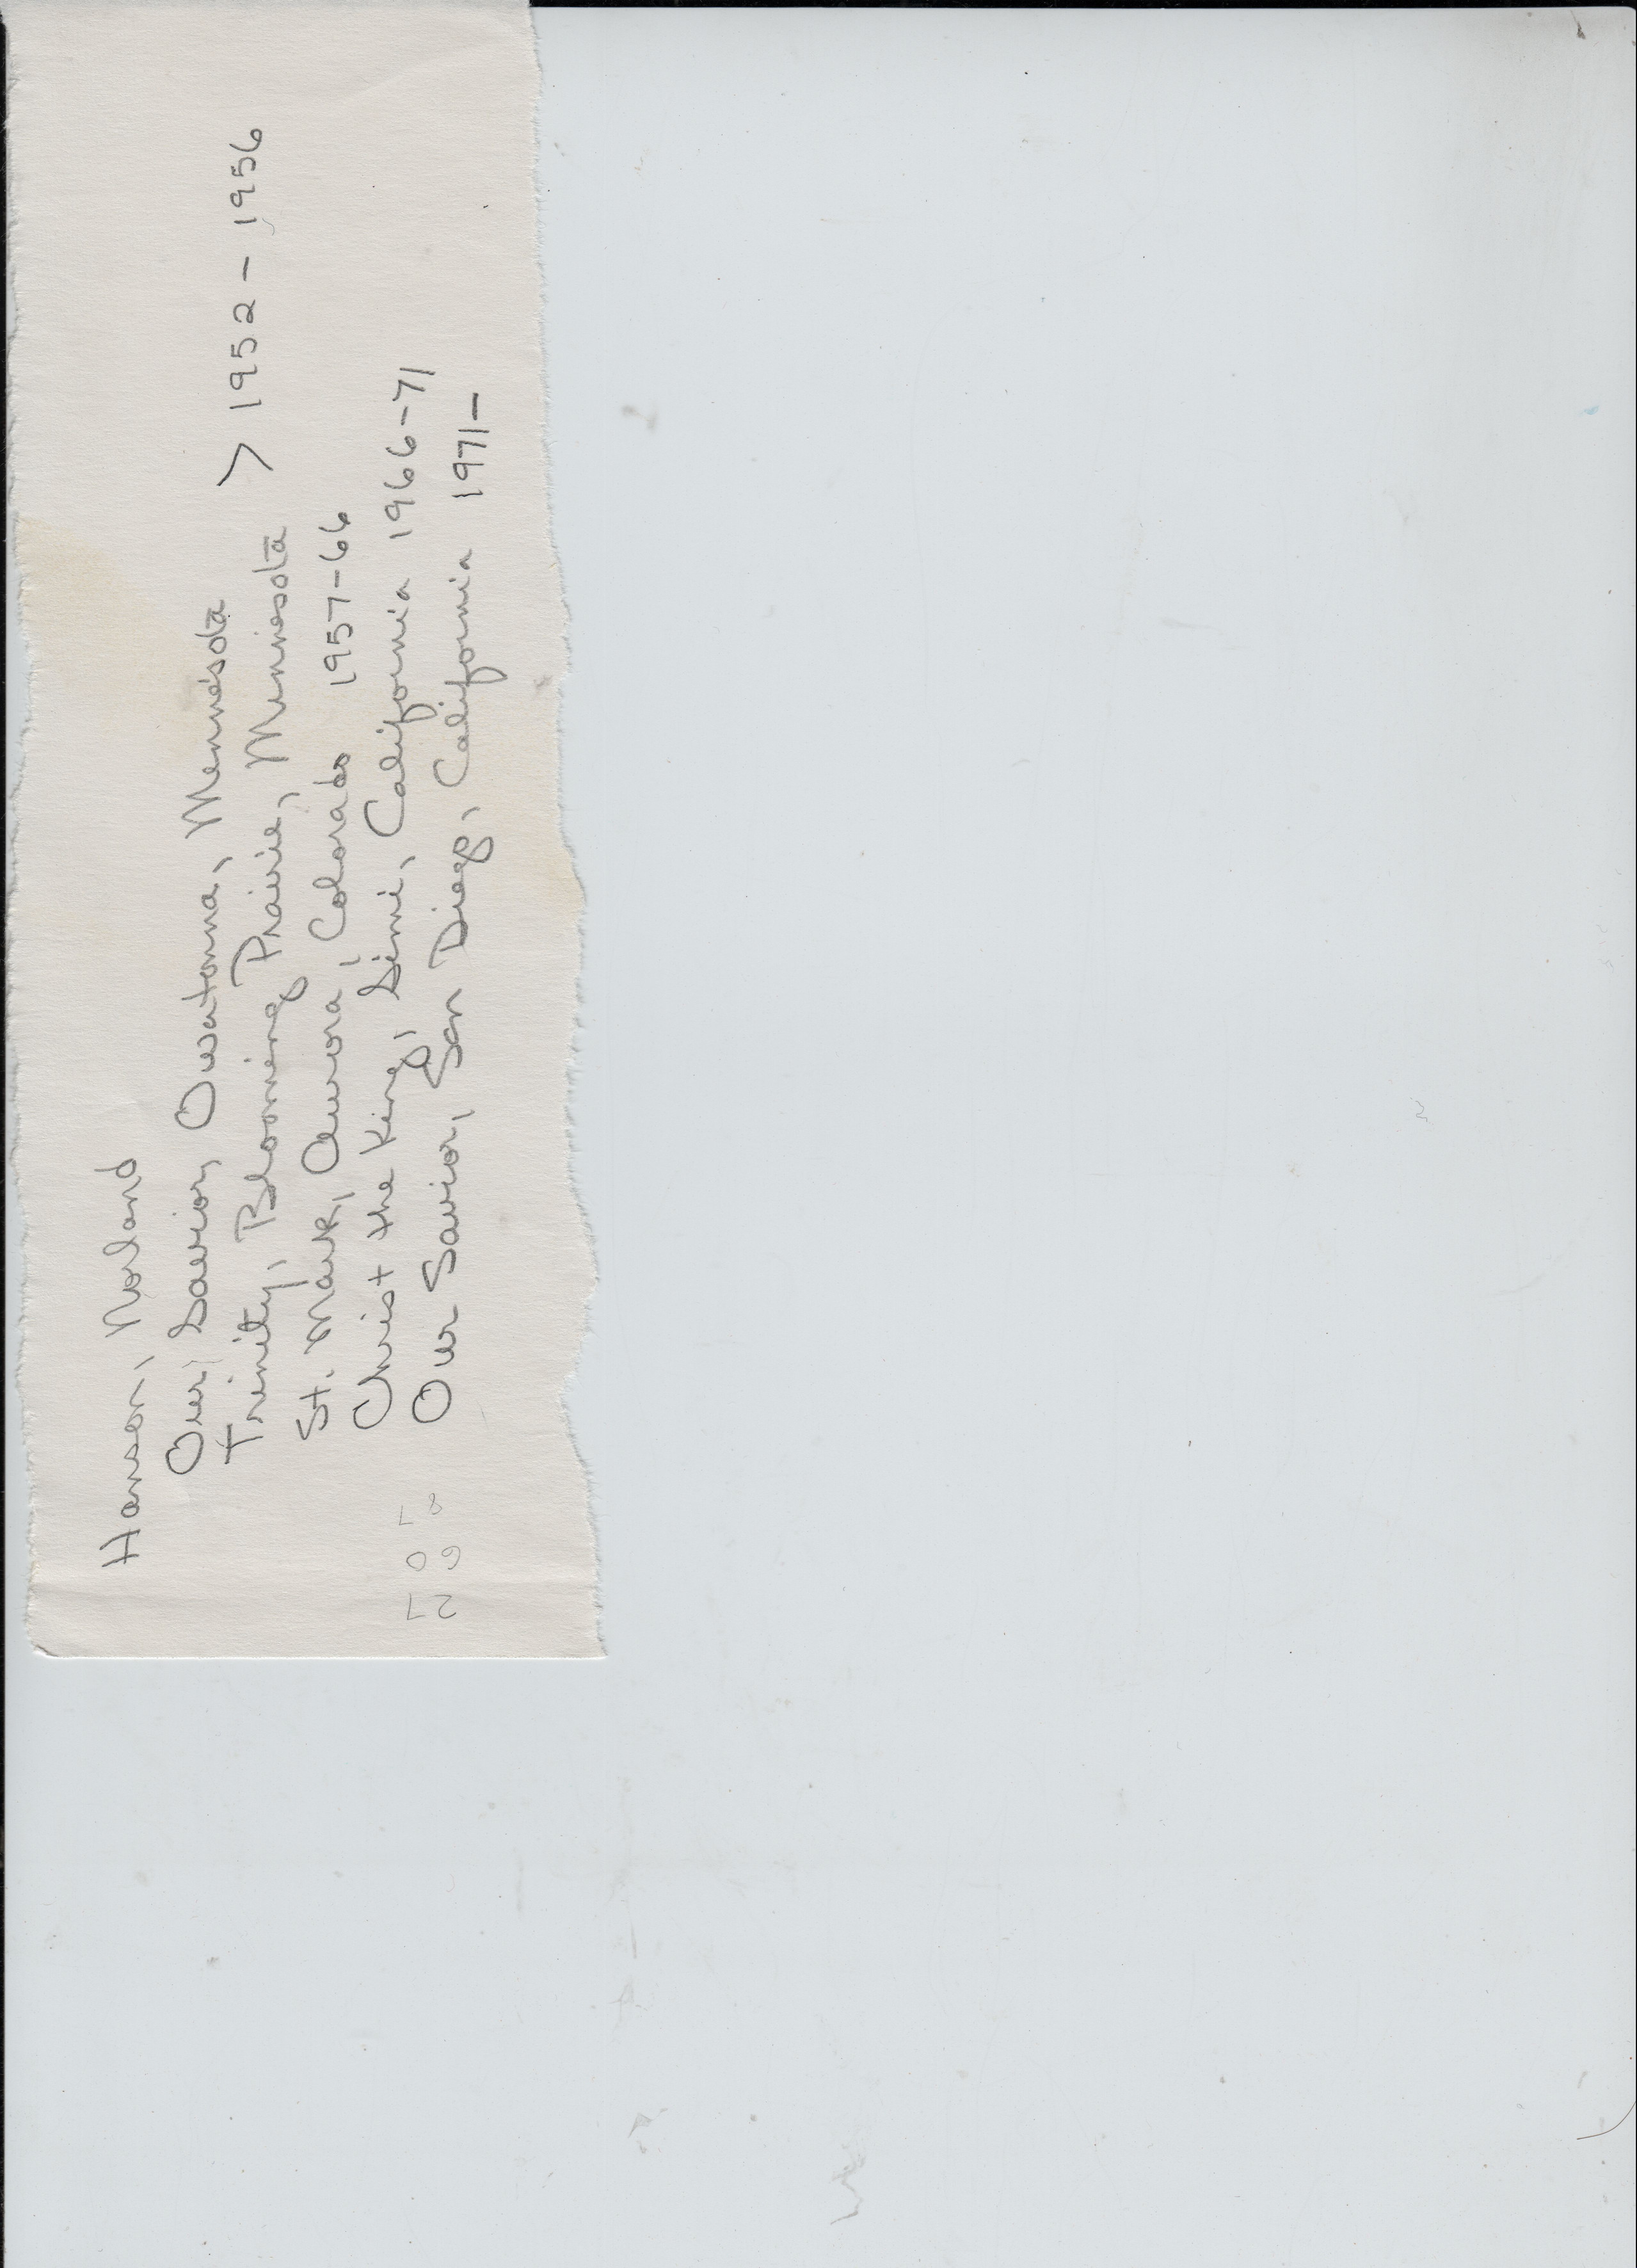 Hanson, Norland
Our Savior, Owatonna, Minnesota
Trinity, Blooming Prairie, Minnesota > 1952 - 1956
St. Mark, Aurora, Colorado 1957-66
Christ the King, Simi, California 1966-71
Our Savior, San Diego, California 1971-